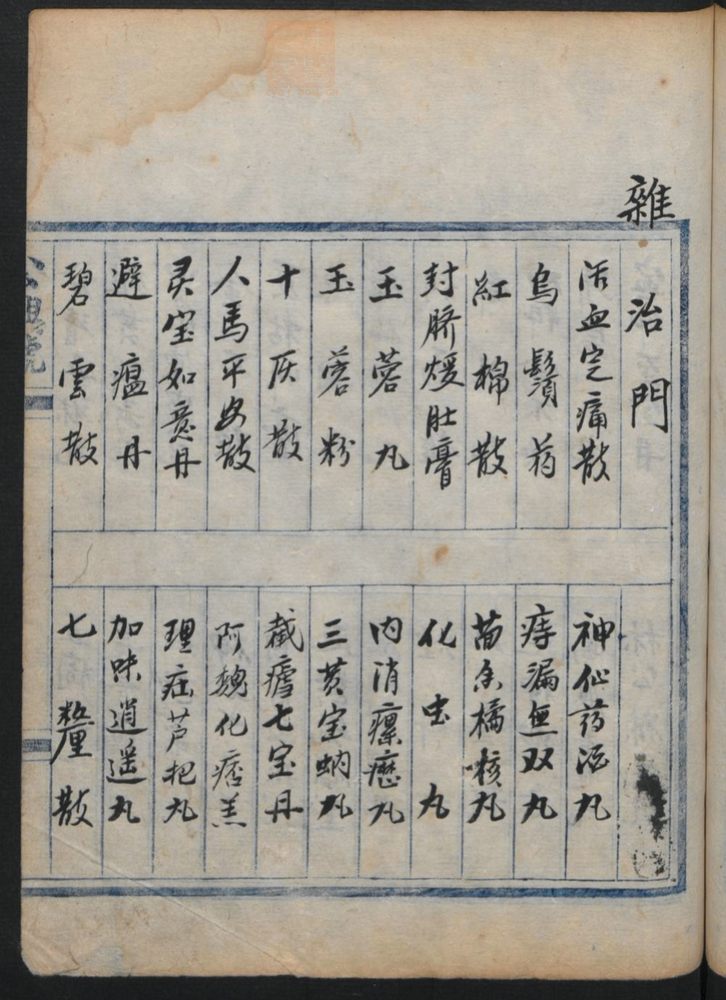 雜
治門
活血定痛散
烏鬚药
紅棉散
封脐煖肚膏
玉蓉丸
玉蓉粉
十灰散
人馬平安散
灵宝如意丹
避瘟丹
碧雲散
神仙药酒丸
痔漏無双丸
茴香橘核丸
化虫丸
内消瘰癧丸
三黄宝蜡丸
截瘧七宝丹
阿魏化痞羔
理症芦杷丸
加味逍遥丸
七釐散